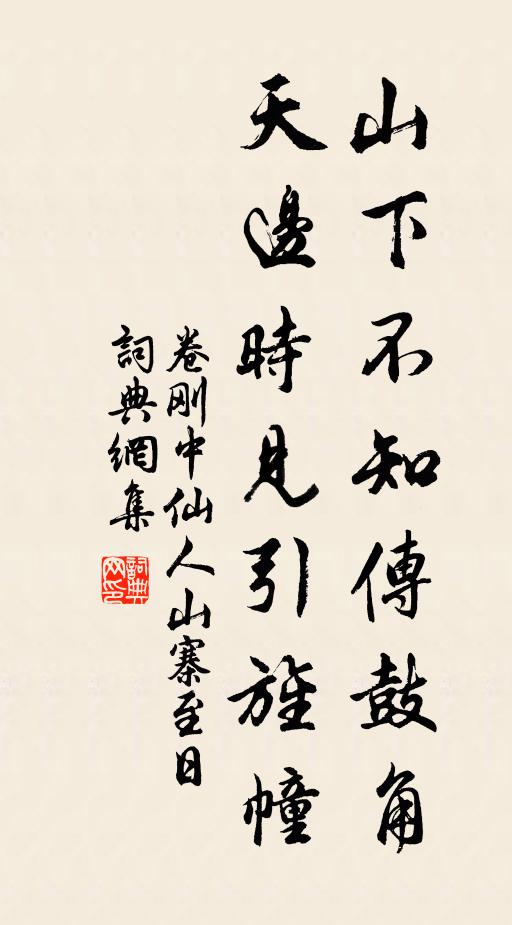 山下不知傳鼓角
天邊時見引旌幢
卷刚中仙人山寨至日
詞典網集
詞典网印